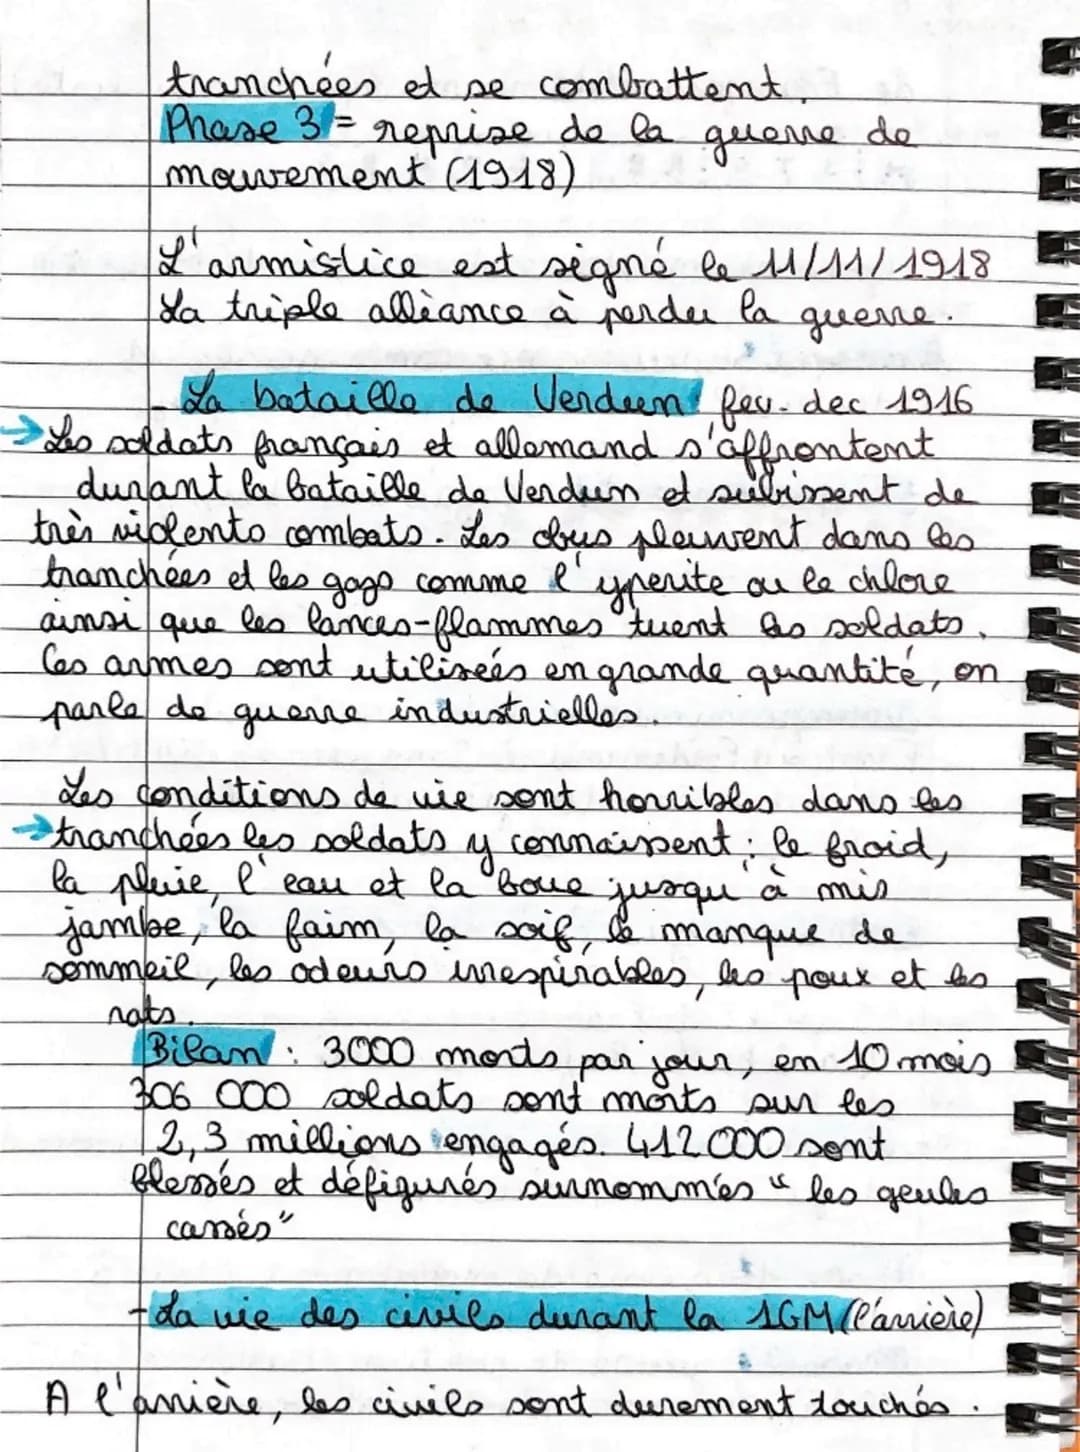 tranchées et se combattent.
Phase 3 = reprise de la guerre de
mouvement (1918)
L'armistice est signé le 11/11/1918
La triple alliance à perdu la guerre.
- La bataille de Verdun : fev. dec 1916
→ Les soldats français et allemand s'affrontent
durant la bataille de Verdun et subissent de
très violents combats. Les obus pleuvent dans les
tranchées et les gags comme l'yperite ou le chlore
ainsi que les lances-flammes tuent les soldats.
Ces armes sont utilisées en grande quantité, on
parle de guerre industrielles.
Les conditions de vie sont horribles dans les
→ tranchées les soldats y connaissent : le froid,
la pluie, l'eau et la boue jusqu'à mis
jambe, la faim, la soif, le manque de
sommeil, les odeurs irrespirables, les poux et les
rats.
Bilan : 3000 morts par jour, en 10 mois
306 000 soldats sont morts sur les
2,3 millions engagés. 412 000 sont
blessés et défigurés surnommés "les geules
cassés"
- La vie des civils durant la 1GM (l'arrière)
A l'arrière, les civils sont durement touchés.